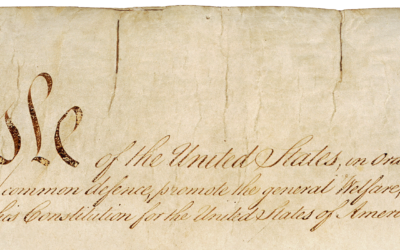 of the United States, in Ord
common defence, promote the general Welfare,
his Constitution for the United States of Americ